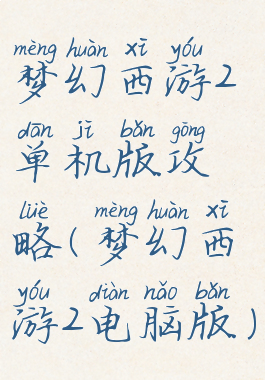 mèng huàn xī yóu
梦幻西游2
dān jī bǎn gōng
单机版攻
lüè mèng huàn xī
略(梦幻西
yóu diàn nǎo bǎn
游2电脑版)